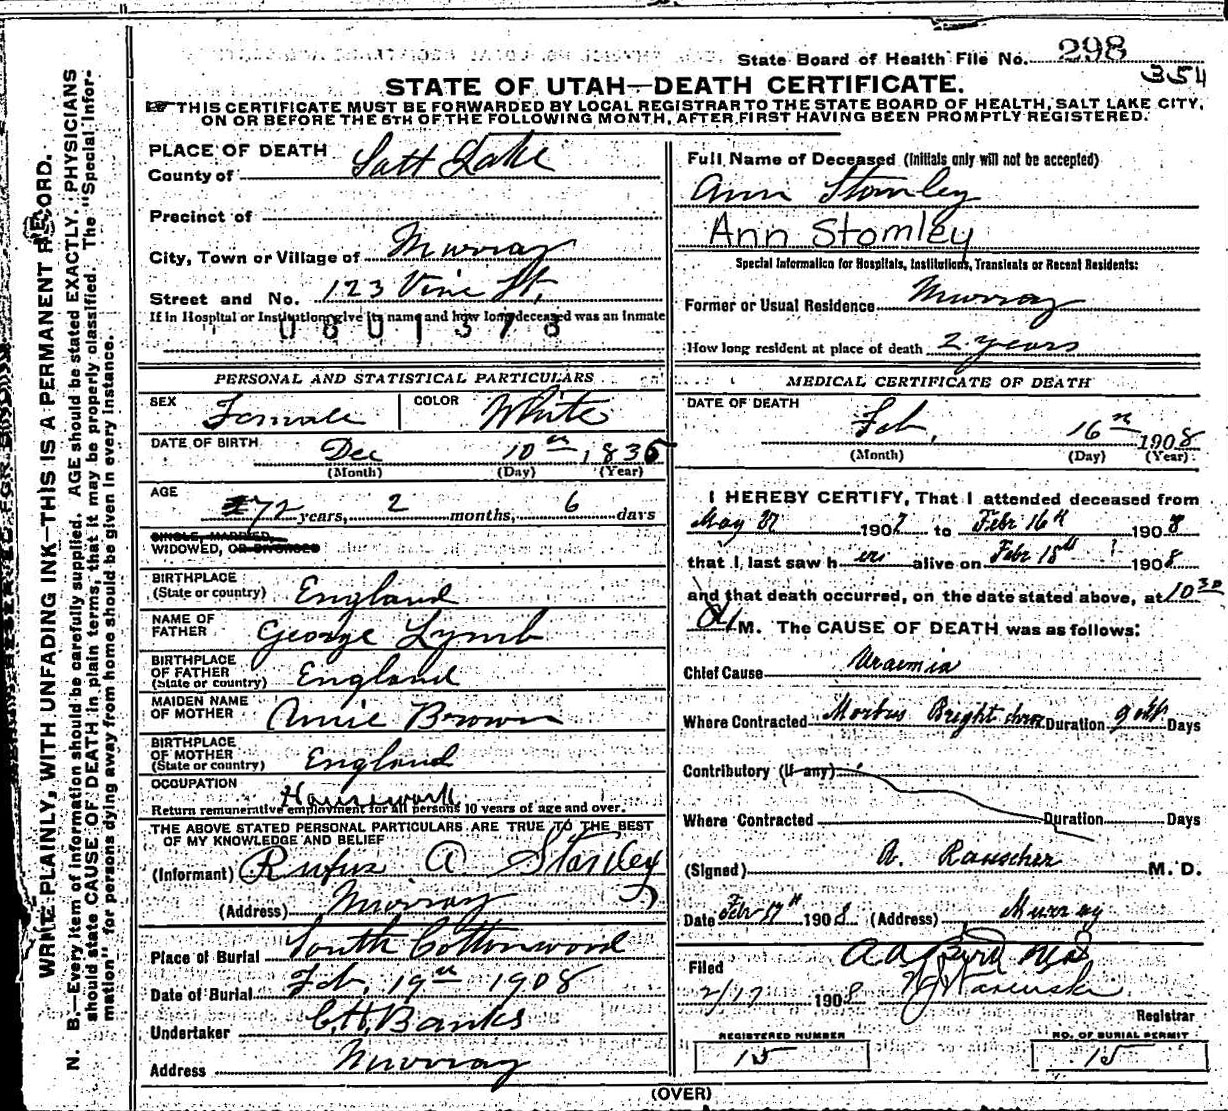 State Board of Health File No. 298
354
STATE OF UTAH—DEATH CERTIFICATE.
THIS CERTIFICATE MUST BE FORWARDED BY LOCAL REGISTRAR TO THE STATE BOARD OF HEALTH, SALT LAKE CITY,
ON OR BEFORE THE 5TH OF THE FOLLOWING MONTH, AFTER FIRST HAVING BEEN PROMPTLY REGISTERED.
WRITE PLAINLY, WITH UNFADING INK—THIS IS A PERMANENT RECORD.
N. B.—Every item of information should be carefully supplied. AGE should be stated EXACTLY. PHYSICIANS
should state CAUSE OF DEATH in plain terms, that it may be properly classified. The "Special Infor-
mation" for persons dying away from home should be given in every instance.
PLACE OF DEATH
County of Salt Lake
Precinct of
City, Town or Village of Murray
Street and No. 123 Vine St,
If in Hospital or Institution give its name and how long deceased was an inmate
0601378
PERSONAL AND STATISTICAL PARTICULARS
SEX Female COLOR White
DATE OF BIRTH Dec 10th, 1835
(Month) (Day) (Year)
AGE
72 years, 2 months, 6 days
SINGLE, MARRIED,
WIDOWED, OR DIVORCED
BIRTHPLACE
(State or country) England
NAME OF
FATHER George Lymb
BIRTHPLACE
OF FATHER
(State or country) England
MAIDEN NAME
OF MOTHER Annie Brown
BIRTHPLACE
OF MOTHER
(State or country) England
OCCUPATION Housework
Return remunerative employment for all persons 10 years of age and over.
THE ABOVE STATED PERSONAL PARTICULARS ARE TRUE TO THE BEST
OF MY KNOWLEDGE AND BELIEF
(Informant) Rufus A Stanley
(Address) Murray
Place of Burial South Cottonwood
Date of Burial Feb. 19th 1908
Undertaker C.H. Banks
Address Murray
Full Name of Deceased (Initials only will not be accepted)
Ann Stomley
Ann Stomley
Special Information for Hospitals, Institutions, Transients or Recent Residents:
Former or Usual Residence Murray
How long resident at place of death 2 years
MEDICAL CERTIFICATE OF DEATH
DATE OF DEATH
Feb, 16th 1908
(Month) (Day) (Year)
I HEREBY CERTIFY, That I attended deceased from
May 27 1907 to Febr 16th 1908
that I last saw her alive on Febr 15th 1908
and that death occurred, on the date stated above, at 10 30
A M. The CAUSE OF DEATH was as follows:
Chief Cause Uraemia
Where Contracted Morbus Bright chron Duration Days
Contributory (if any)
Where Contracted Duration Days
(Signed) A. Rauscher M. D.
Date Febr 17th 1908 (Address) Murray
A A Bird MD
Filed
2/17 1908
Registrar
REGISTERED NUMBER
15
NO. OF BURIAL PERMIT
15
(OVER)